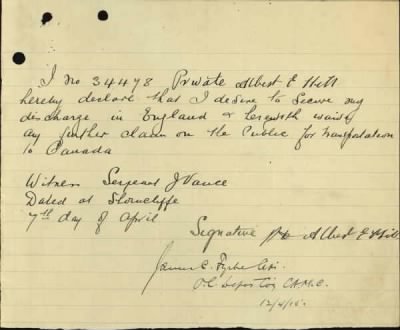 I No 34478 Private Albert E Hill
hereby declare that I desire to secure my
discharge in England & herewith waive
any further claim on the Public for Transportation
to Canada
Witness Sergeant J Vance
Dated at Shorncliffe
7th day of April
Signature Pte Albert E Hill
James C.
O.C. Depot Coy C.A.M.C.
12/4/16